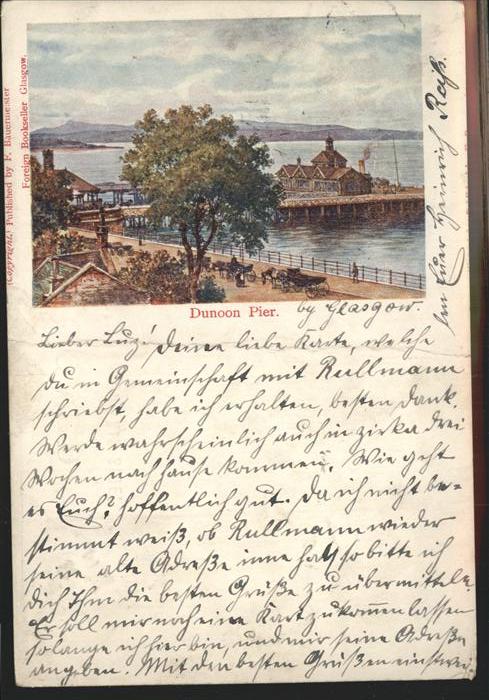 (Copyright.) Published by F. Bauermeister
Foreign Bookseller Glasgow.
Dunoon Pier.
by Glasgow.
Lieber Luz! Deine liebe Karte, welche
du in Gemeinschaft mit Rullmann
schriebst, habe ich erhalten, besten Dank.
Werde wahrscheinlich auch in zirka drei
Wochen nach hause kommen. Wie geht
es Euch? hoffentlich gut. Da ich nicht be-
stimmt weiß, ob Rullmann wieder
seine alte Adreße inne hat, so bitte ich
Dich Ihm die besten Grüße zu übermitteln.
Er soll mir noch eine Kart zukommen lassen
solange ich hier bin, und mir seine Adreße
angeben. Mit den besten Grüßen einstwei
len Euer Heinrich Reiß.